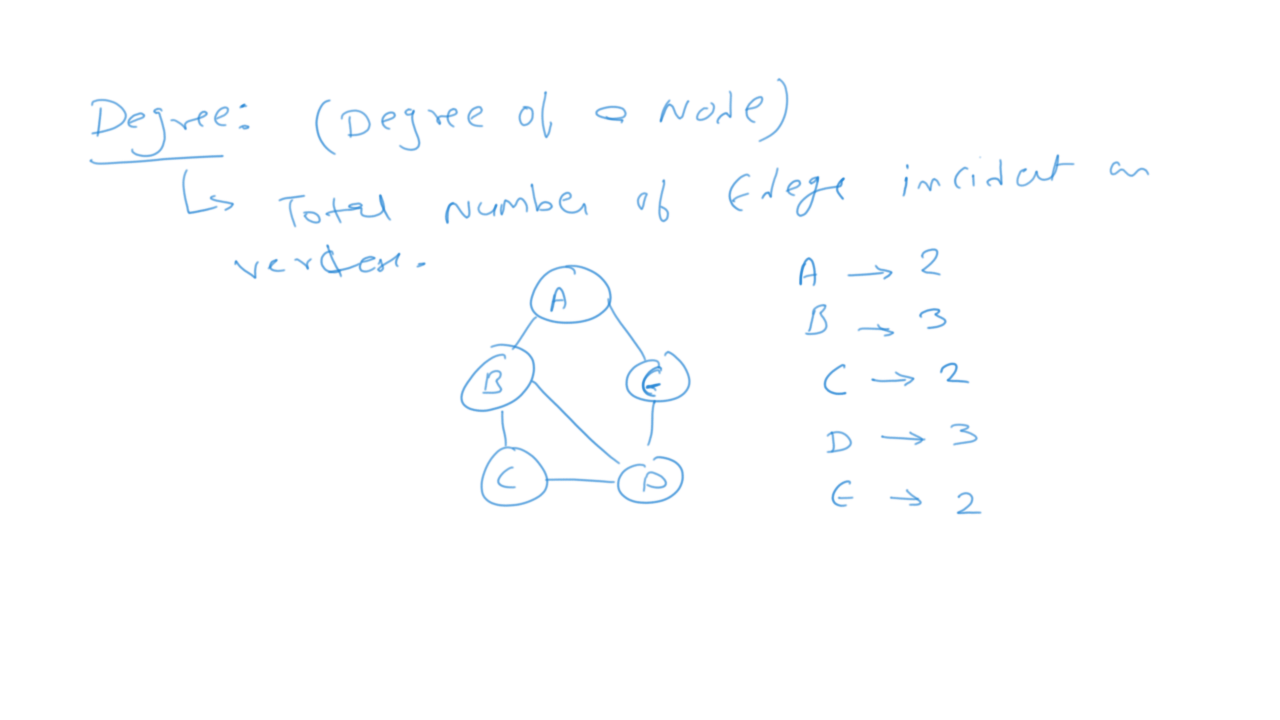 Degree: (Degree of a Node)
↳ Total number of Edege incident on
vertex.
A → 2
B → 3
C → 2
D → 3
E → 2
A
B
E
C
D